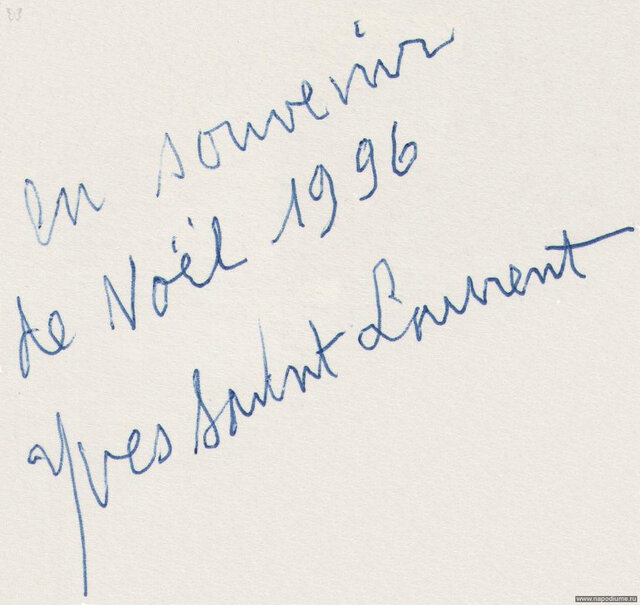 en souvenir
de Noël 1996
Yves Saint Laurent
www.napodiume.ru